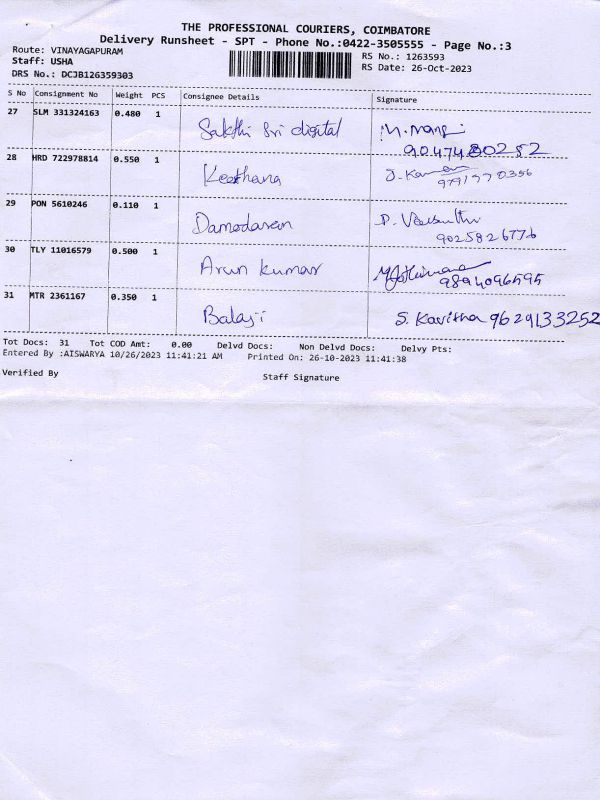 THE PROFESSIONAL COURIERS, COIMBATORE
Delivery Runsheet - SPT - Phone No.:0422-3505555 - Page No.:3
Route: VINAYAGAPURAM
RS No.: 1263593
Staff: USHA
RS Date: 26-Oct-2023
DRS No.: DCJB126359303
S No Consignment No Weight PCS Consignee Details Signature
27 SLM 331324163 0.480 1 Sakthi Sri digital M. Mani
9047480252
28 HRD 722978814 0.550 1 Keerthana J.
9791770356
29 PON 5610246 0.110 1 Damodaran D. Vasanthi
9025826776
30 TLY 11016579 0.500 1 Arun Kumar
9894096595
31 MTR 2361167 0.350 1 Balaji S. Kavitha 9629133252
Tot Docs: 31 Tot COD Amt: 0.00 Delvd Docs: Non Delvd Docs: Delvy Pts:
Entered By :AISWARYA 10/26/2023 11:41:21 AM Printed On: 26-10-2023 11:41:38
Verified By Staff Signature